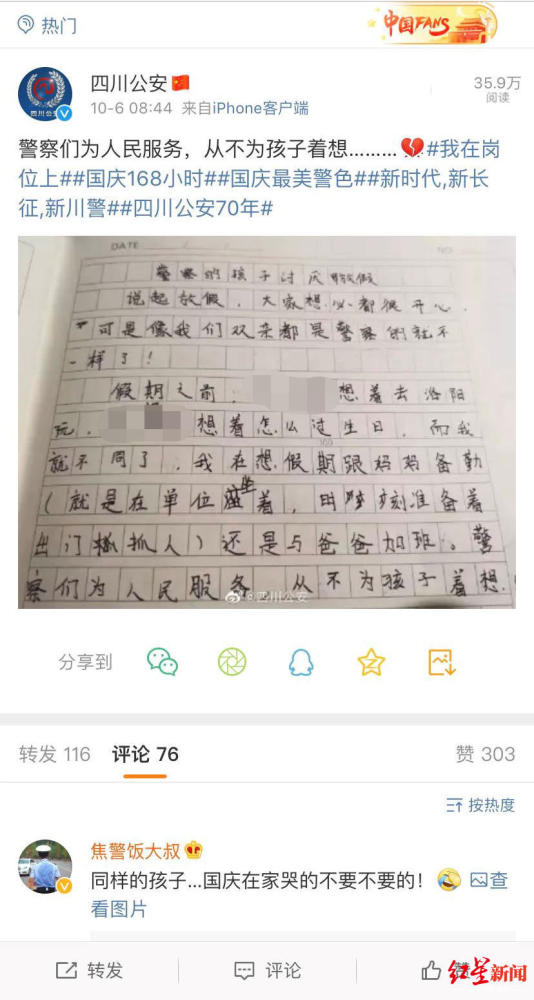 热门
中国FANS
四川公安
35.9万
阅读
10-6 08:44 来自iPhone客户端
警察们为人民服务，从不为孩子着想………💔#我在岗
位上##国庆168小时##国庆最美警色##新时代,新长
征,新川警##四川公安70年#
DATE
NO
警察的孩子讨厌放假
说起放假，大家想必都很开心。
可是像我们双亲都是警察的就不
一样了！
假期之前， 想着去洛阳
玩， 想着怎么过生日，而我
就不同了，我在想假期跟妈妈备勤
（就是在单位坐着，时刻准备着
出门抓人）还是与爸爸加班。警
察们为人民服务，从不为孩子着想。
@四川公安
分享到
转发 116 评论 76 赞 303
按热度
焦警饭大叔
同样的孩子...国庆在家哭的不要不要的！🤣查
看图片
转发 评论 赞
红星新闻